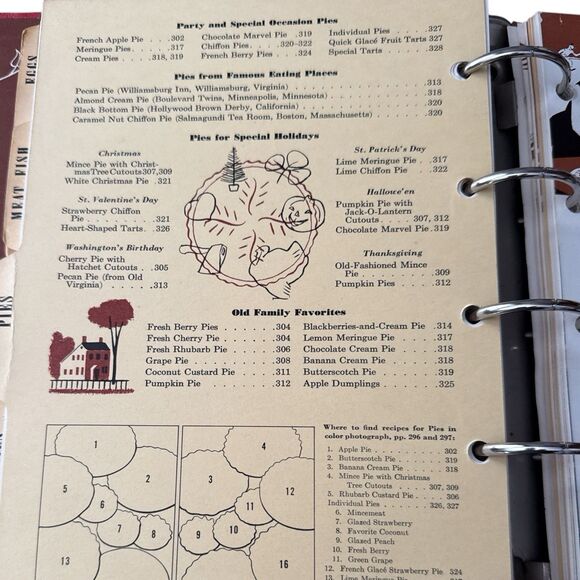 Party and Special Occasion Pies
French Apple Pie . . 302
Meringue Pies. . . .317
Cream Pies . . .318, 319
Chocolate Marvel Pie . 319
Chiffon Pies. . . .320–322
French Berry Pies . . 324
Individual Pies . . . .327
Quick Glacé Fruit Tarts 327
Special Tarts . . . . .328
Pies from Famous Eating Places
Pecan Pie (Williamsburg Inn, Williamsburg, Virginia) . . . . . . . . .313
Almond Cream Pie (Boulevard Twins, Minneapolis, Minnesota) . . . . . .318
Black Bottom Pie (Hollywood Brown Derby, California) . . . . . . . . .320
Caramel Nut Chiffon Pie (Salmagundi Tea Room, Boston, Massachusetts) . . . .320
Pies for Special Holidays
Christmas
Mince Pie with Christ-
mas Tree Cutouts 307,309
White Christmas Pie . 321
St. Valentine's Day
Strawberry Chiffon
Pie . . . . . . . . .321
Heart-Shaped Tarts. . 326
Washington's Birthday
Cherry Pie with
Hatchet Cutouts . . 305
Pecan Pie (from Old
Virginia) . . . . . .313
St. Patrick's Day
Lime Meringue Pie . .317
Lime Chiffon Pie . . . 322
Hallowe'en
Pumpkin Pie with
Jack-O-Lantern
Cutouts . . . . .307, 312
Chocolate Marvel Pie .319
Thanksgiving
Old-Fashioned Mince
Pie . . . . . . . . . 309
Pumpkin Pies . . . . .312
Old Family Favorites
Fresh Berry Pies . . . . . .304
Fresh Cherry Pie . . . . . 304
Fresh Rhubarb Pie . . . . 306
Grape Pie . . . . . . . . 308
Coconut Custard Pie . . . .311
Pumpkin Pie . . . . . . . 312
Blackberries-and-Cream Pie . 314
Lemon Meringue Pie . . . . .317
Chocolate Cream Pie . . . . .318
Banana Cream Pie . . . . . .318
Butterscotch Pie . . . . . . .319
Apple Dumplings . . . . . . .325
Where to find recipes for Pies in
color photograph, pp. 296 and 297:
1. Apple Pie . . . . . . . . . . 302
2. Butterscotch Pie . . . . . . . 319
3. Banana Cream Pie . . . . . . 318
4. Mince Pie with Christmas
Tree Cutouts . . . . . 307, 309
5. Rhubarb Custard Pie . . . . . 306
Individual Pies . . . . . . . 326, 327
6. Mincemeat
7. Glazed Strawberry
8. Favorite Coconut
9. Glazed Peach
10. Fresh Berry
11. Green Grape
12. French Glacé Strawberry Pie 324
13. Lime Meringue Pie
1
2
5
6
7
8
13
3
4
12
11
10
9
16
EGGS
MEAT FISH
PIES